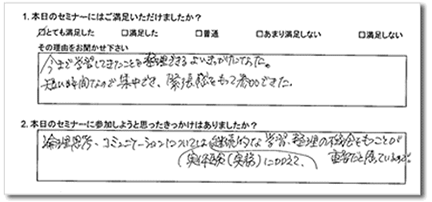 1. 本日のセミナーにはご満足いただけましたか?
☑とても満足した □満足した □普通 □あまり満足しない □満足しない
その理由をお聞かせ下さい
今まで学習してきたことを整理できるよいきっかけになった。
短い時間なので集中でき、緊張感をもって参加できた。
2. 本日のセミナーに参加しようと思ったきっかけはありましたか?
論理思考、コミュニケーションについては継続的な学習、整理の機会をもつことが
(実体験(実務)に加えて、 重要だと思っています。